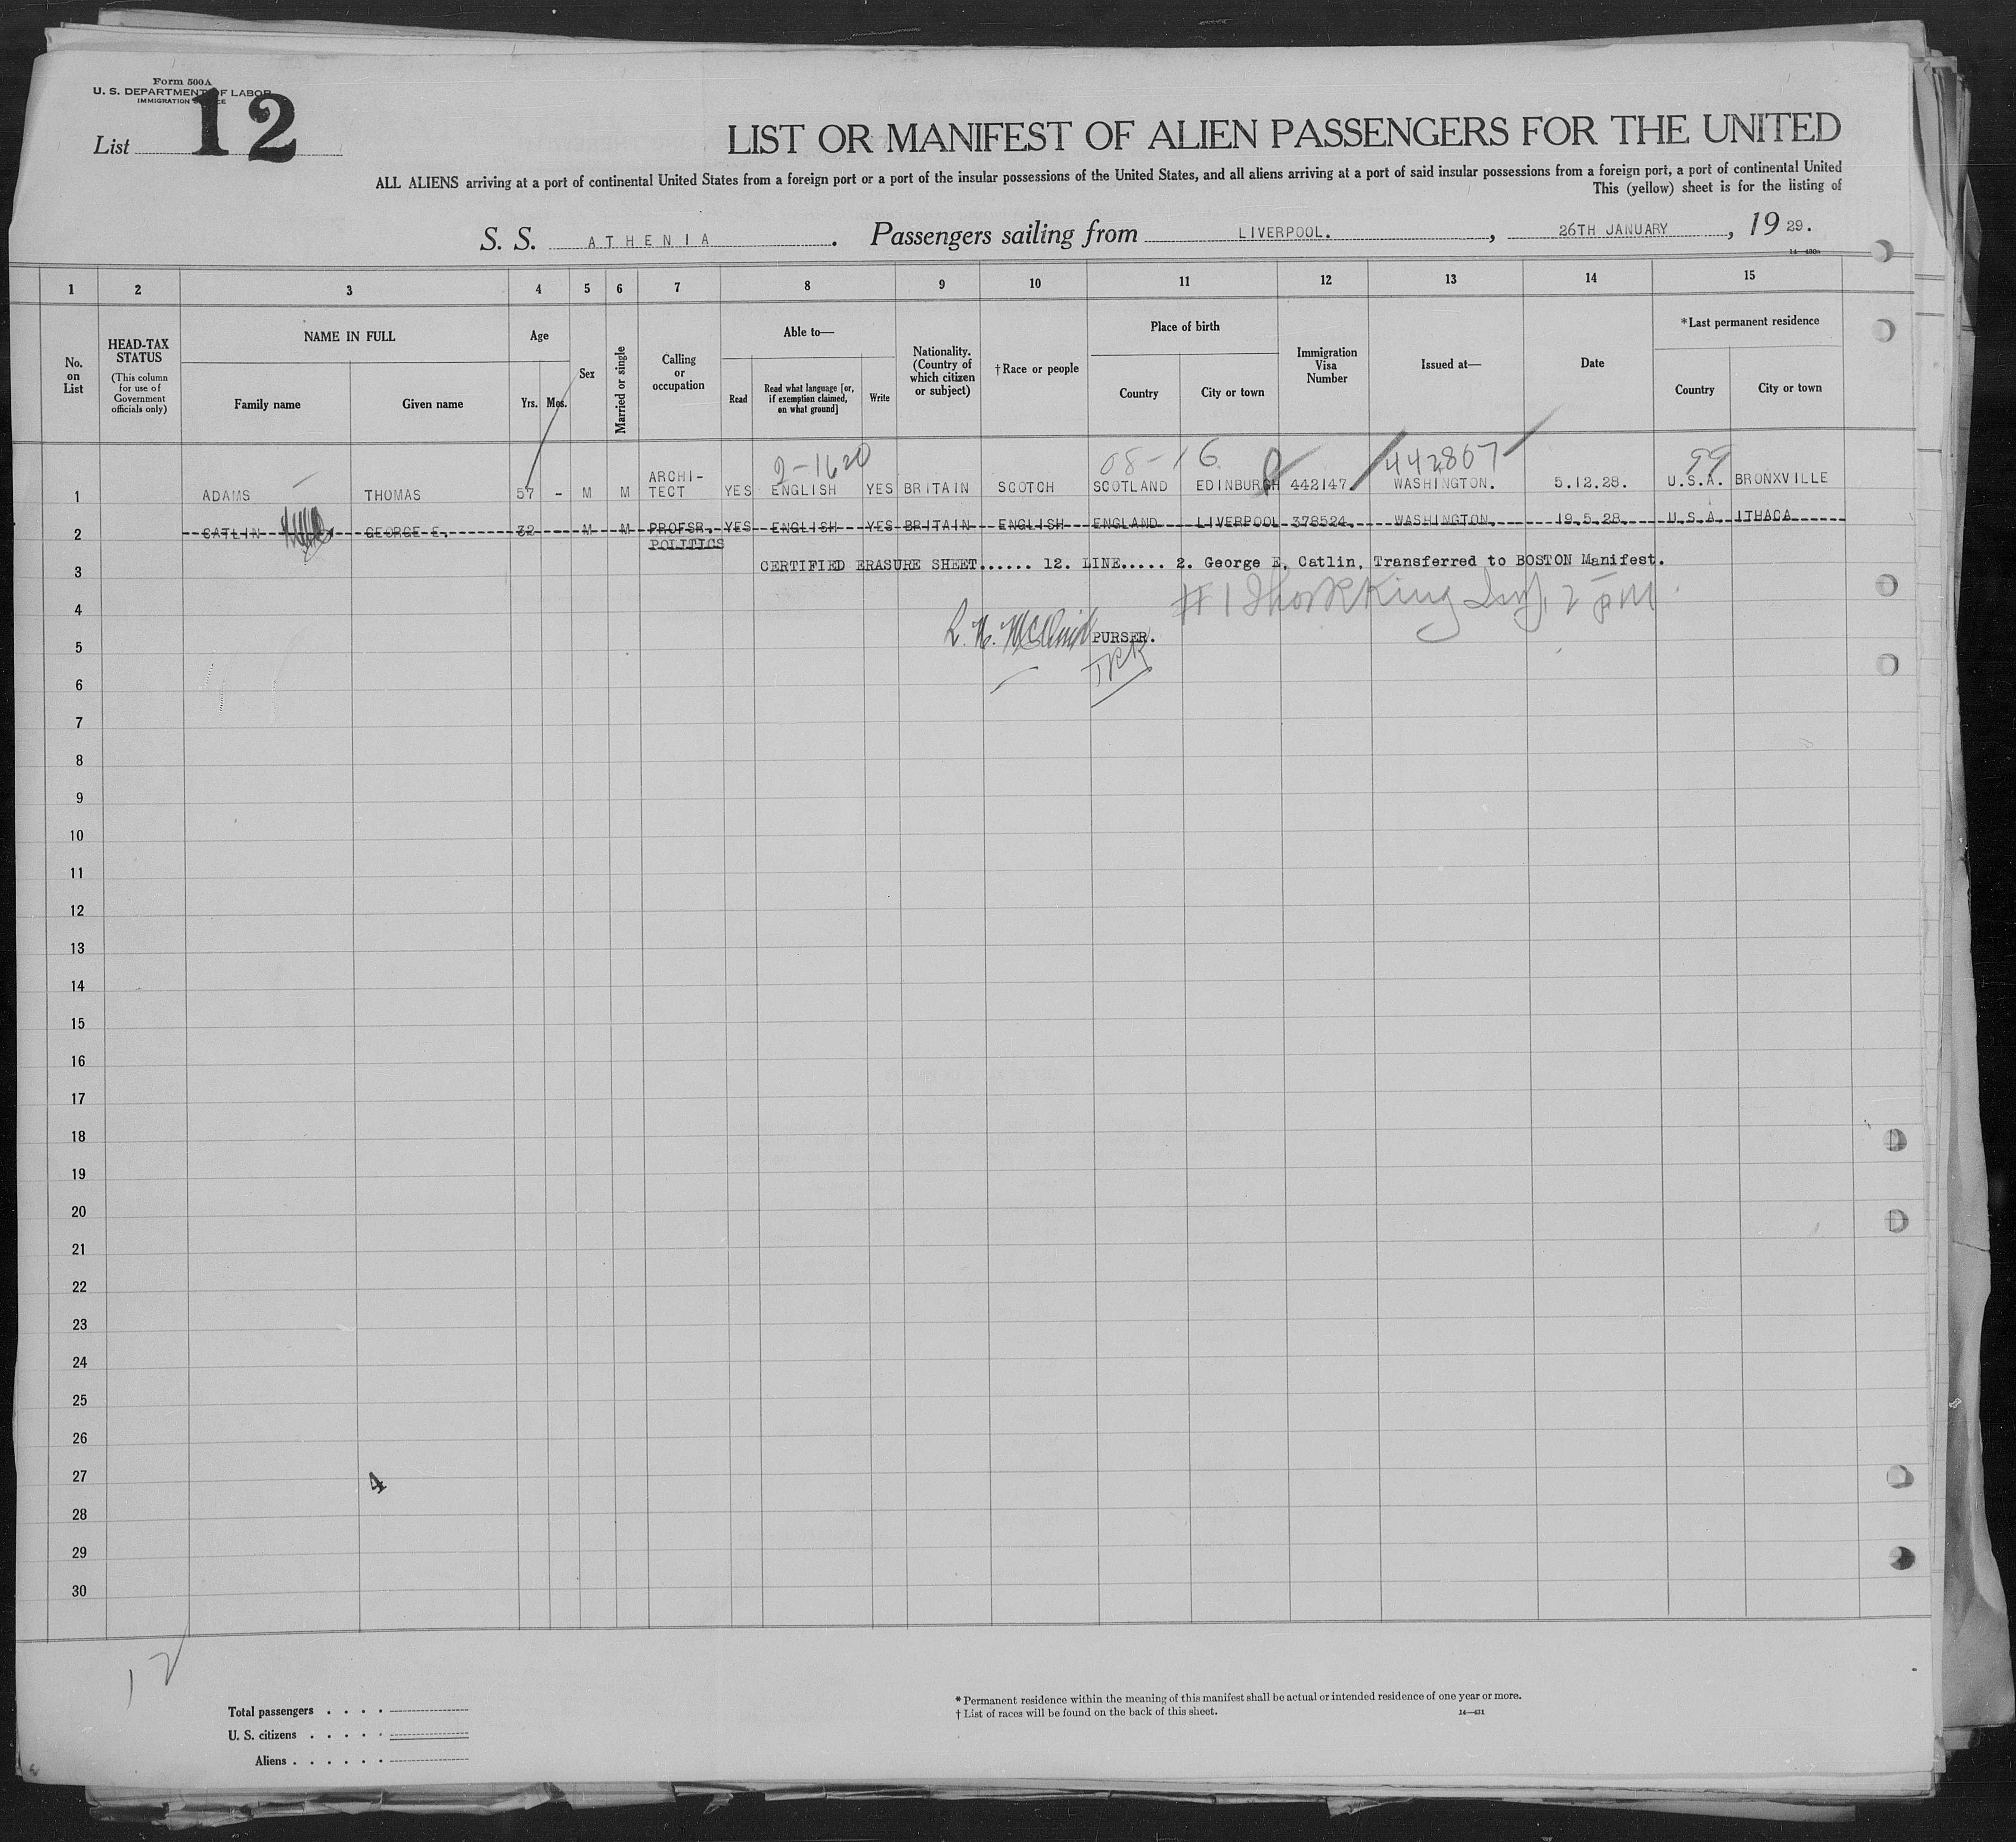 Form 500A
U. S. DEPARTMENT OF LABOR
IMMIGRATION
List 12
LIST OR MANIFEST OF ALIEN PASSENGERS FOR THE UNITED
ALL ALIENS arriving at a port of continental United States from a foreign port or a port of the insular possessions of the United States, and all aliens arriving at a port of said insular possessions from a foreign port, a port of continental United
This (yellow) sheet is for the listing of
S. S. ATHENIA . Passengers sailing from LIVERPOOL. , 26TH JANUARY , 19 29.
1 2 3 4 5 6 7 8 9 10 11 12 13 14 15
No. on List
HEAD-TAX STATUS
(This column for use of Government officials only)
NAME IN FULL
Family name Given name
Age
Yrs. Mos.
Sex
Married or single
Calling or occupation
Able to—
Read
Read what language [or, if exemption claimed, on what ground]
Write
Nationality. (Country of which citizen or subject)
†Race or people
Place of birth
Country City or town
Immigration Visa Number
Issued at—
Date
*Last permanent residence
Country City or town
2-1620 08-16 442807 99
1 ADAMS THOMAS 57 - M M ARCHI-TECT YES ENGLISH YES BRITAIN SCOTCH SCOTLAND EDINBURGH 442147. WASHINGTON. 5.12.28. U.S.A. BRONXVILLE
2 CATLIN GEORGE E. 32 M M PROFSR. POLITICS YES ENGLISH YES BRITAIN ENGLISH ENGLAND LIVERPOOL 378524. WASHINGTON. 19.5.28. U.S.A. ITHACA
3 CERTIFIED ERASURE SHEET...... 12. LINE..... 2. George E. Catlin, Transferred to BOSTON Manifest.
4 #1
5 PURSER.
6
7
8
9
10
11
12
13
14
15
16
17
18
19
20
21
22
23
24
25
26
27 4
28
29
30
12
Total passengers . . . .
U. S. citizens . . . . .
Aliens . . . . . .
* Permanent residence within the meaning of this manifest shall be actual or intended residence of one year or more.
† List of races will be found on the back of this sheet.
14—431